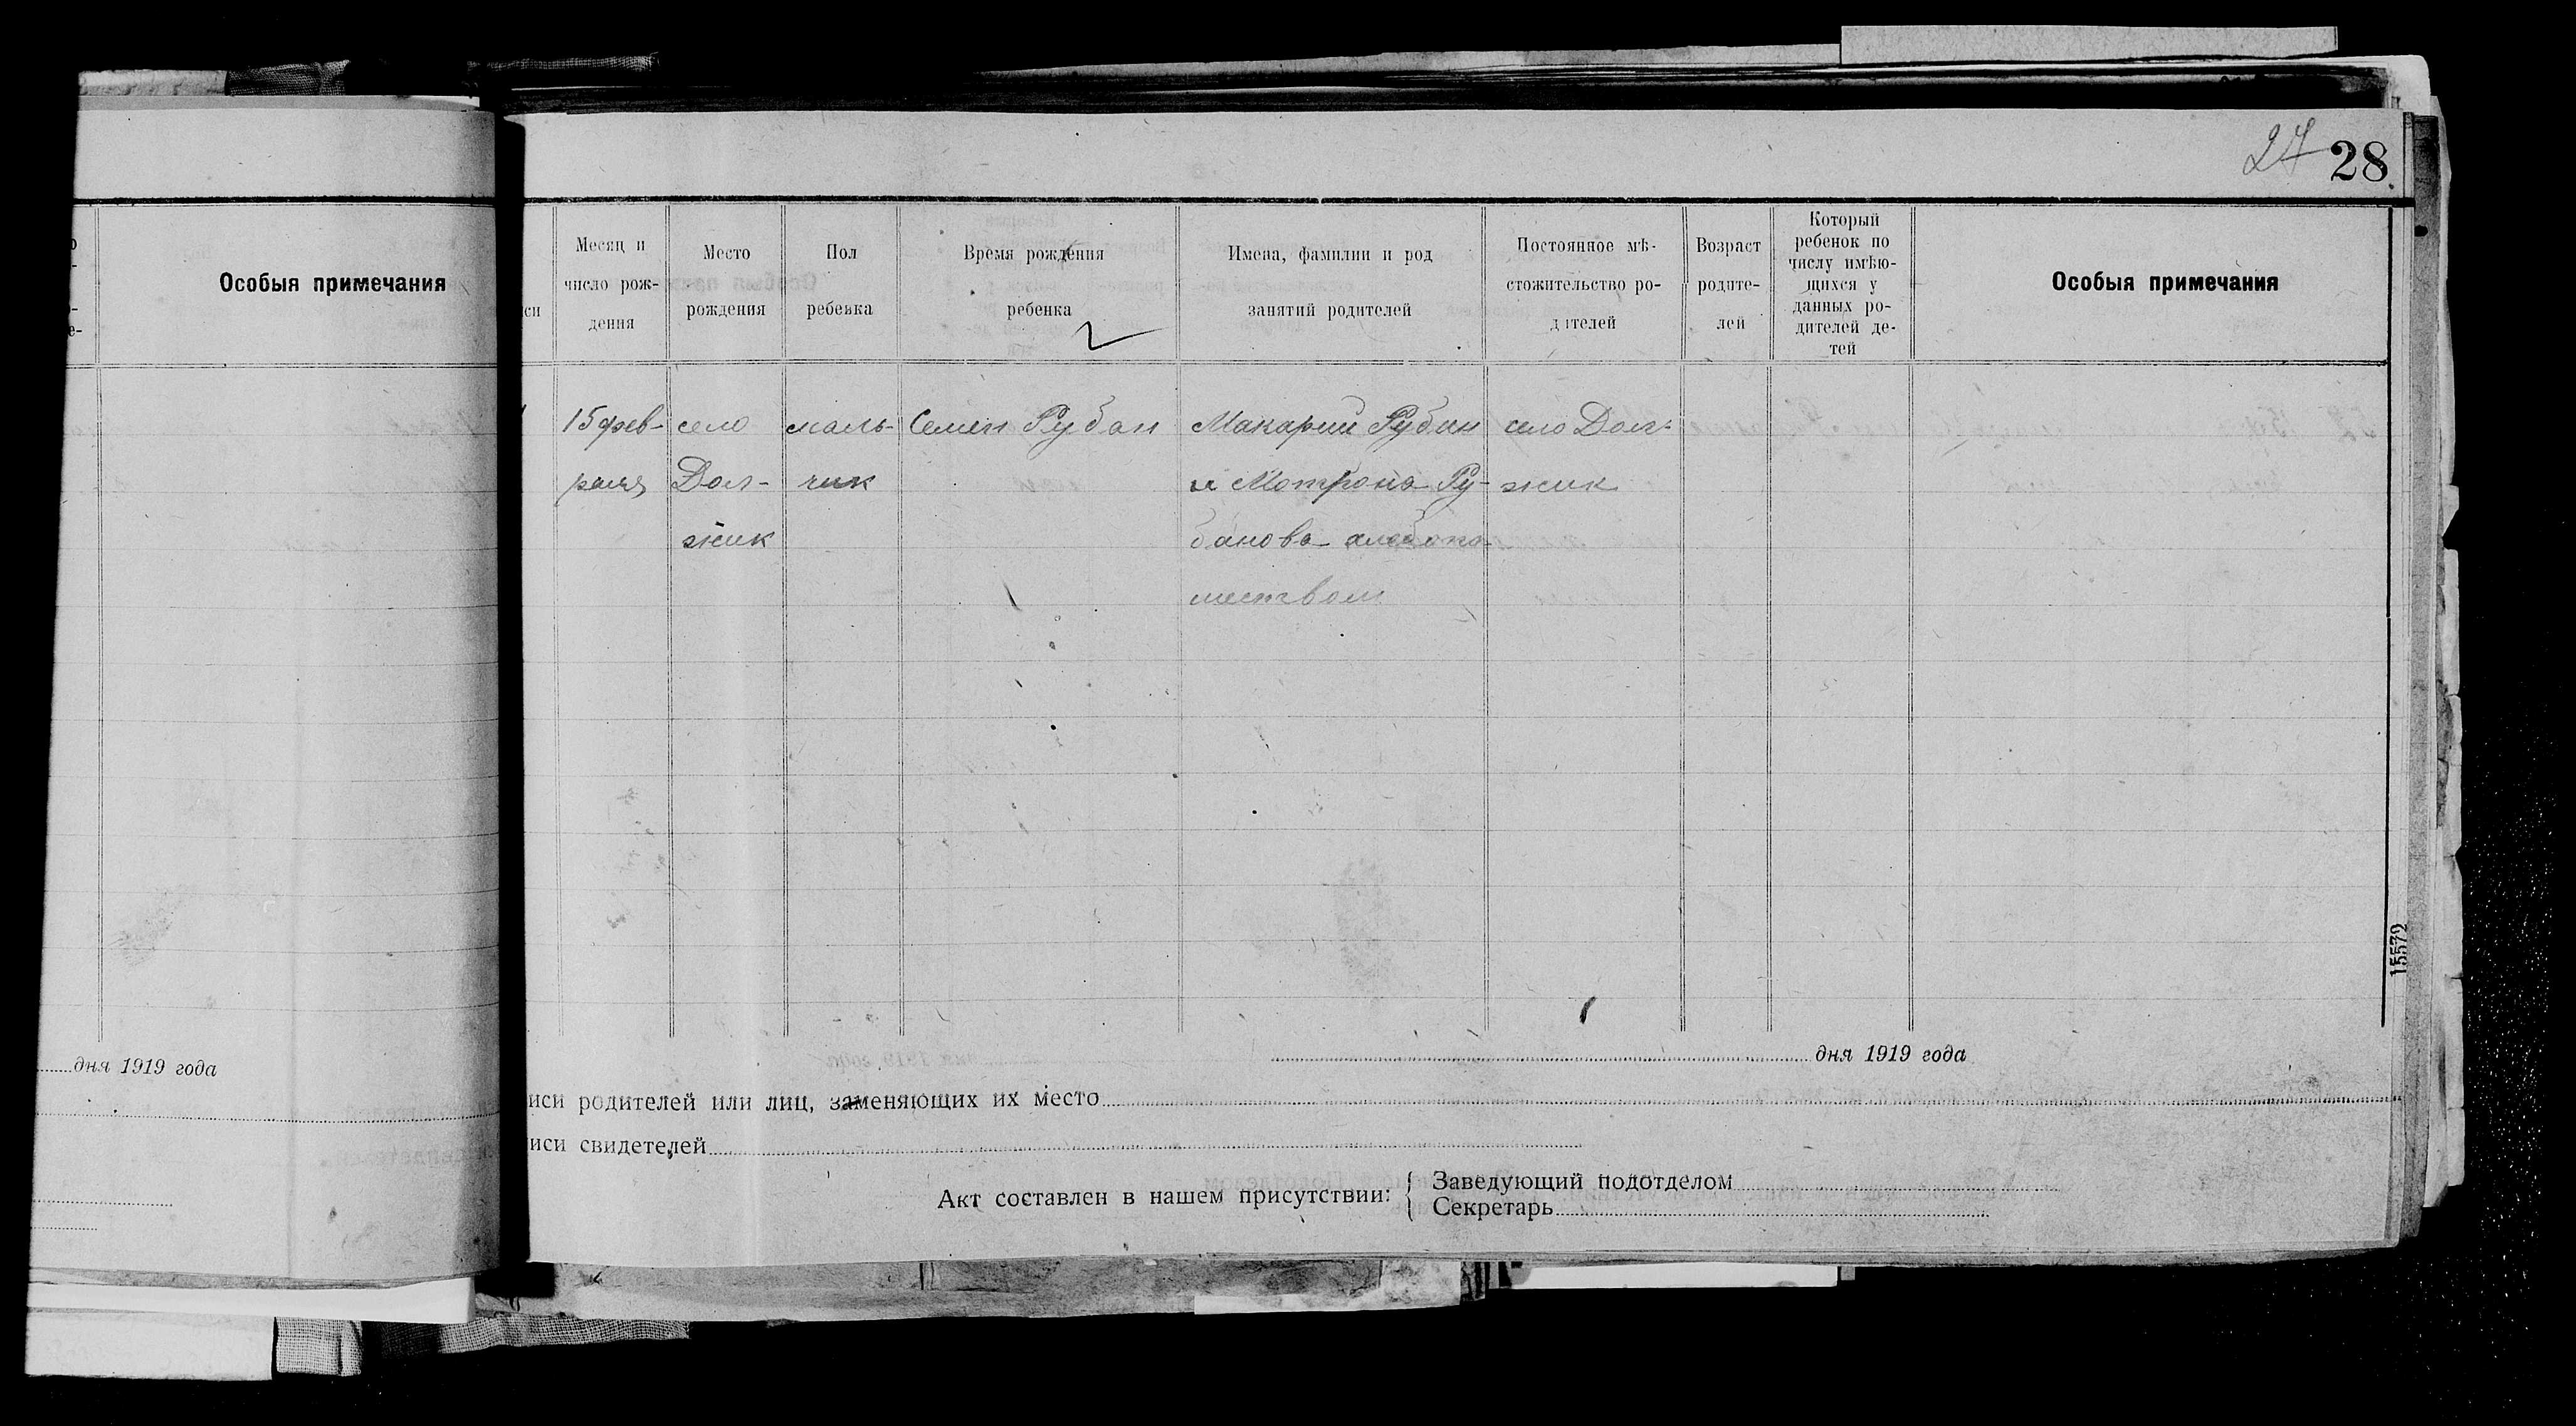 27 28
Особыя примечания
Месяц и число рож-дения
Место рождения
Пол ребенка
Время рождения ребенка
Имена, фамилии и род занятий родителей
Постоянное мѣ-стожительство ро-дителей
Возраст родите-лей
Который ребенок по числу имѣю-щихся у данных ро-дителей де-тей
Особыя примечания
15 фев- село маль- Семен Рубан Макарий Рубан село Дол-
раля Дол- чик и Мотрона Ру- жик
жик банова хлебопа-
шеством
15572
дня 1919 года
дня 1919 года
иси родителей или лиц, заменяющих их место
иси свидетелей
Акт составлен в нашем присутствии: Заведующий подотделом
Секретарь